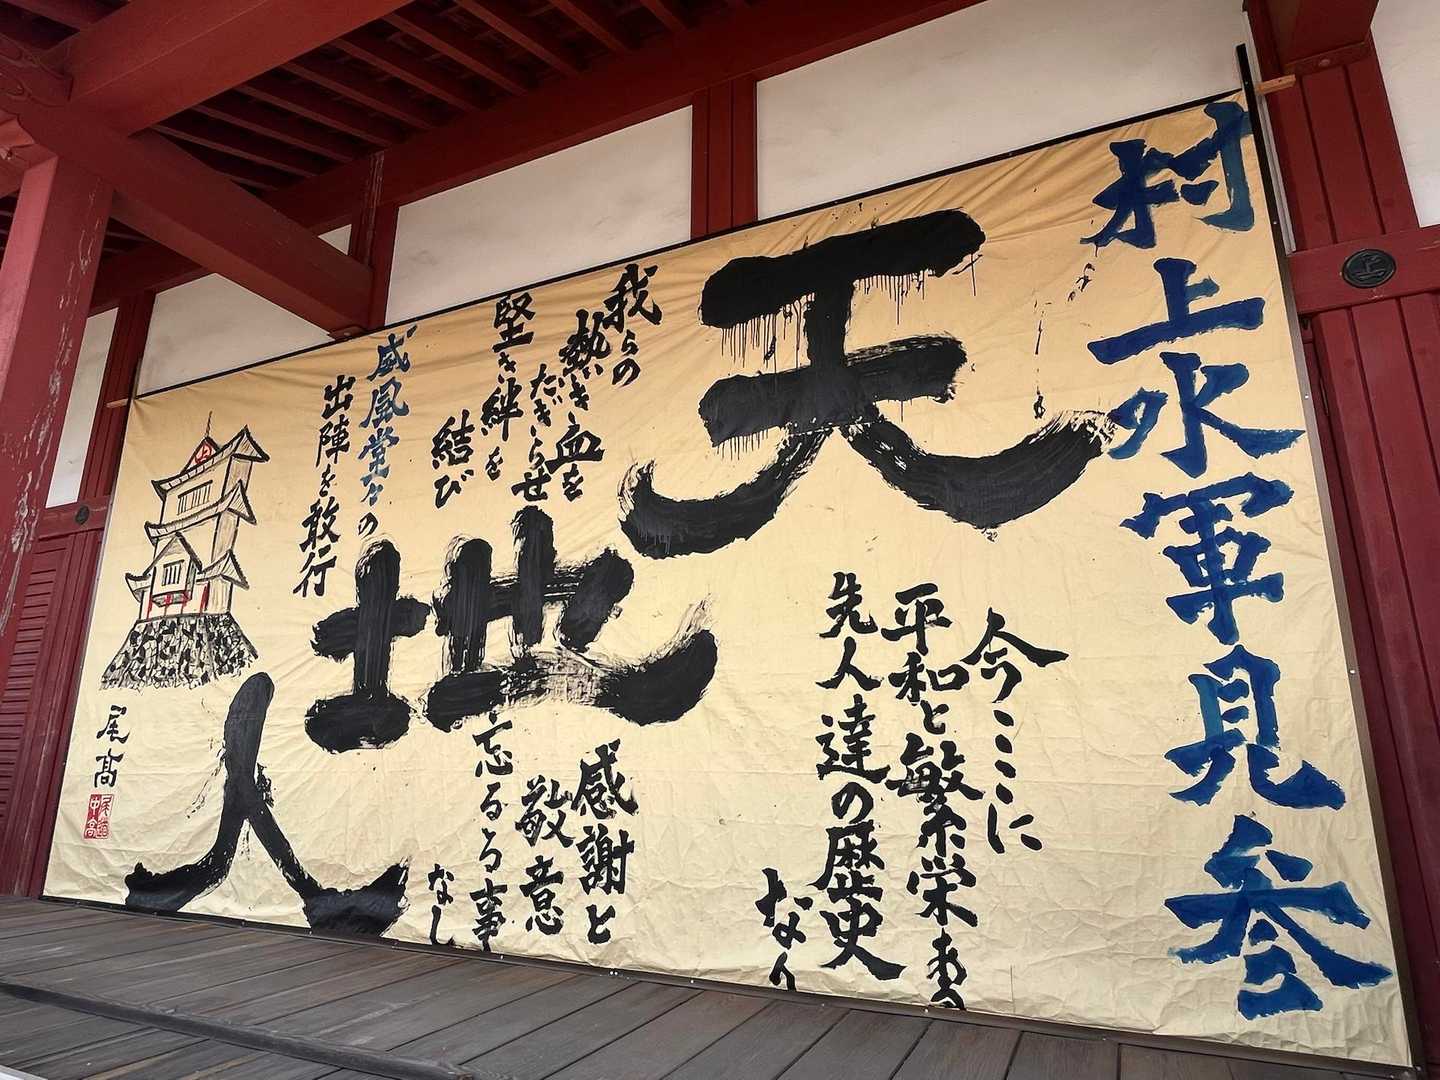 村上水軍見参
天
今ここに
平和と繁栄ある
先人達の歴史
なり
我らの
熱き血を
たぎらせ
堅き絆を
結び
地
感謝と
敬意
忘るる事
なし
威風堂々の
出陣を敢行
人
上
尾高
上